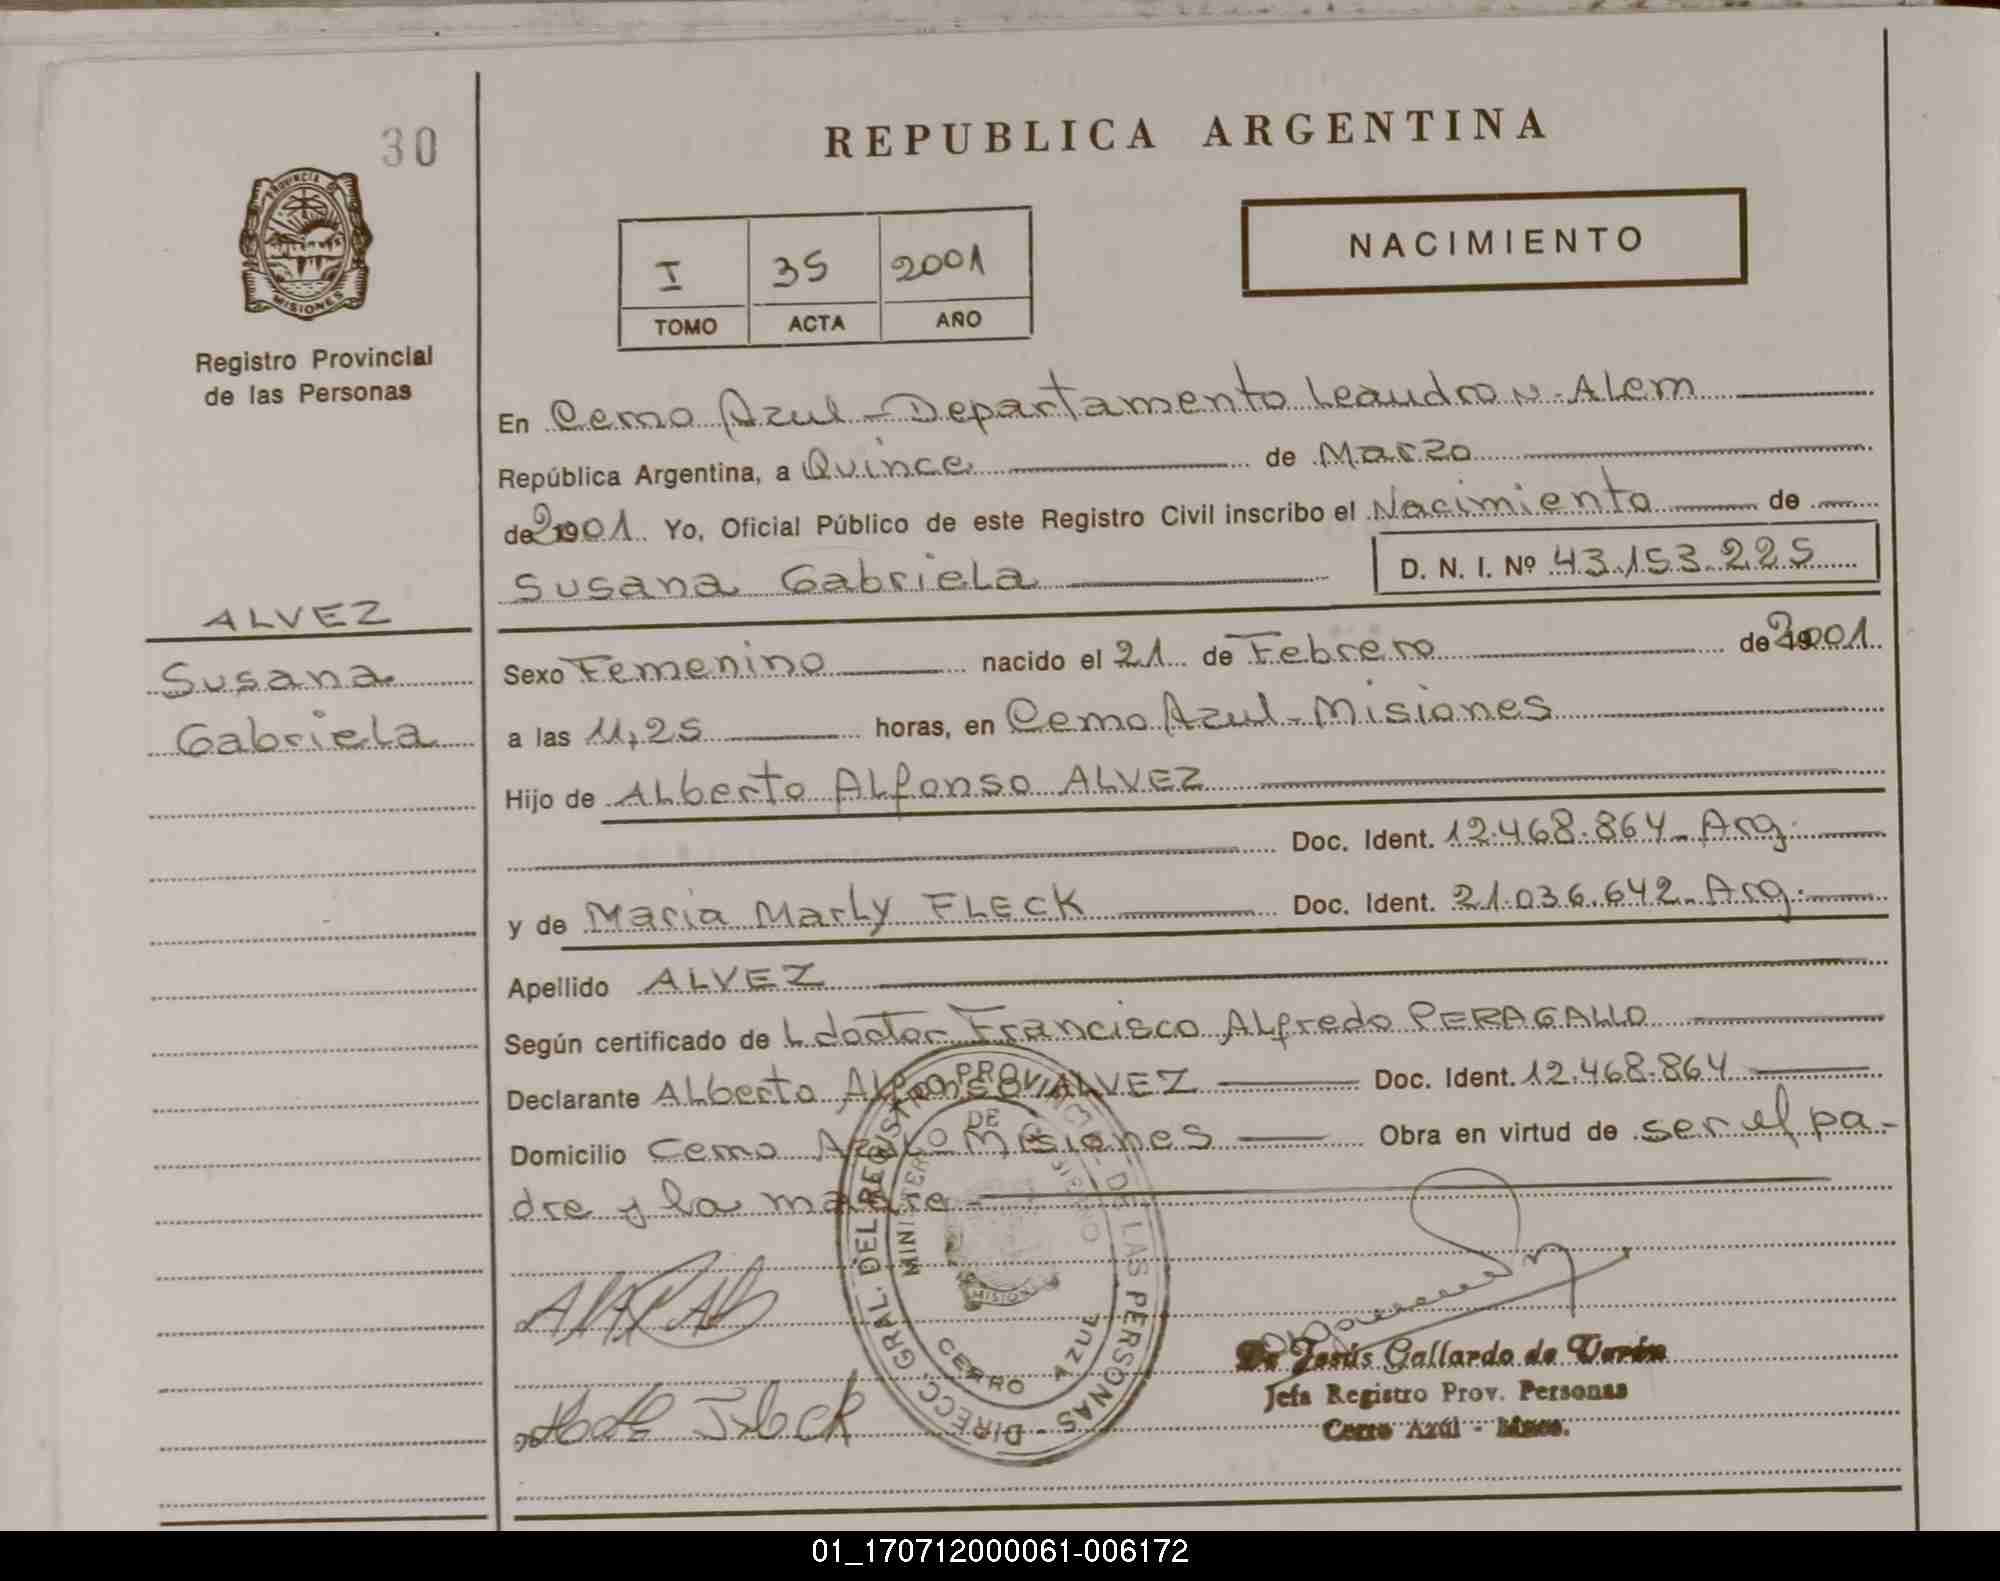 30
REPUBLICA ARGENTINA
PROVINCIA DE
MISIONES
NACIMIENTO
I 35 2001
TOMO ACTA AÑO
Registro Provincial
de las Personas
En Cerro Azul - Departamento Leandro N. Alem
República Argentina, a Quince de Marzo
de 2001. Yo, Oficial Público de este Registro Civil inscribo el Nacimiento de
Susana Gabriela D. N. I. Nº 43.153.225
ALVEZ
Susana
Gabriela
Sexo Femenino nacido el 21 de Febrero de 2001
a las 11,25 horas, en Cerro Azul - Misiones
Hijo de Alberto Alfonso ALVEZ
Doc. Ident. 12.468.864 - Arg.
y de Maria Marly FLECK Doc. Ident. 21.036.642 - Arg.
Apellido ALVEZ
Según certificado de L doctor Francisco Alfredo PERAGALLO
Declarante Alberto Alfonso ALVEZ Doc. Ident. 12.468.864
Domicilio Cerro Azul - Misiones Obra en virtud de ser el pa-
dre y la madre
DIRECC. GRAL. DEL REGISTRO PROVINCIAL DE LAS PERSONAS
MINISTERIO DE GOBIERNO
MISIONES
CERRO AZUL
Fleck
De Jesús Gallardo de Verón
Jefa Registro Prov. Personas
Cerro Azúl - Mnes.
01_170712000061-006172